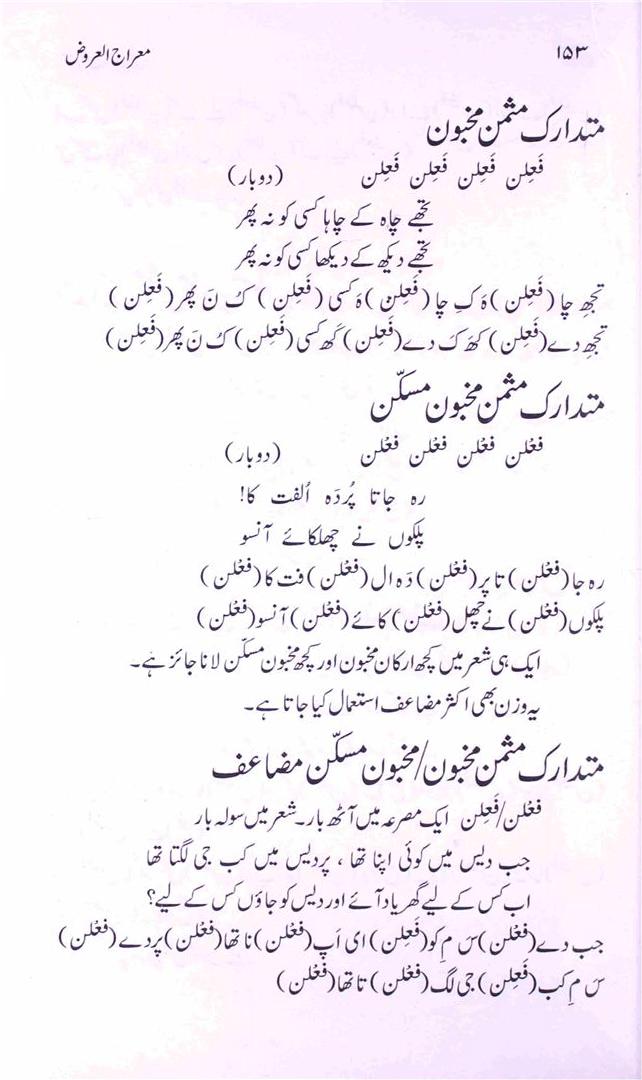 ۱۵۳ معراج العروض
متدارک مثمن مخبون
فَعِلن فَعِلن فَعِلن فَعِلن (دو بار)
تجھے چاہ کے چاہا کسی کو نہ پھر
تجھے دیکھ کے دیکھا کسی کو نہ پھر
تجھِ چا (فَعِلن) ہَ کِ چا (فَعِلن) ہَ کسی (فَعِلن) کُ نَ پھر (فَعِلن)
تجھِ دے (فَعِلن) کھَ کَ دے (فَعِلن) کَھ کسی (فَعِلن) کُ نَ پھر (فَعِلن)
متدارک مثمن مخبون مسکّن
فعْلن فعْلن فعْلن فعْلن (دو بار)
رہ جاتا پُردَہ اُلفت کا!
پلکوں نے چھلکائے آنسو
رہ جا (فعْلن) تا پر (فعْلن) دَہ ال (فعْلن) فت کا (فعْلن)
پلکوں (فعْلن) نے چھل (فعْلن) کائے (فعْلن) آنسو (فعْلن)
ایک ہی شعر میں کچھ ارکان مخبون اور کچھ مخبون مسکّن لانا جائز ہے۔
یہ وزن بھی اکثر مضاعف استعمال کیا جاتا ہے۔
متدارک مثمن مخبون/مخبون مسکّن مضاعف
فعْلن/فَعِلن ایک مصرعہ میں آٹھ بار۔ شعر میں سولہ بار
جب دیس میں کوئی اپنا تھا ، پردیس میں کب جی لگتا تھا
اب کس کے لیے گھر یاد آئے اور دیس کو جاؤں کس کے لیے؟
جب دے (فعْلن) س مِ کو (فَعِلن) ای اَپ (فعْلن) نا تھا (فعْلن) پردے (فعْلن)
س مِ کب (فَعِلن) جی لگ (فعْلن) تا تھا (فعْلن)